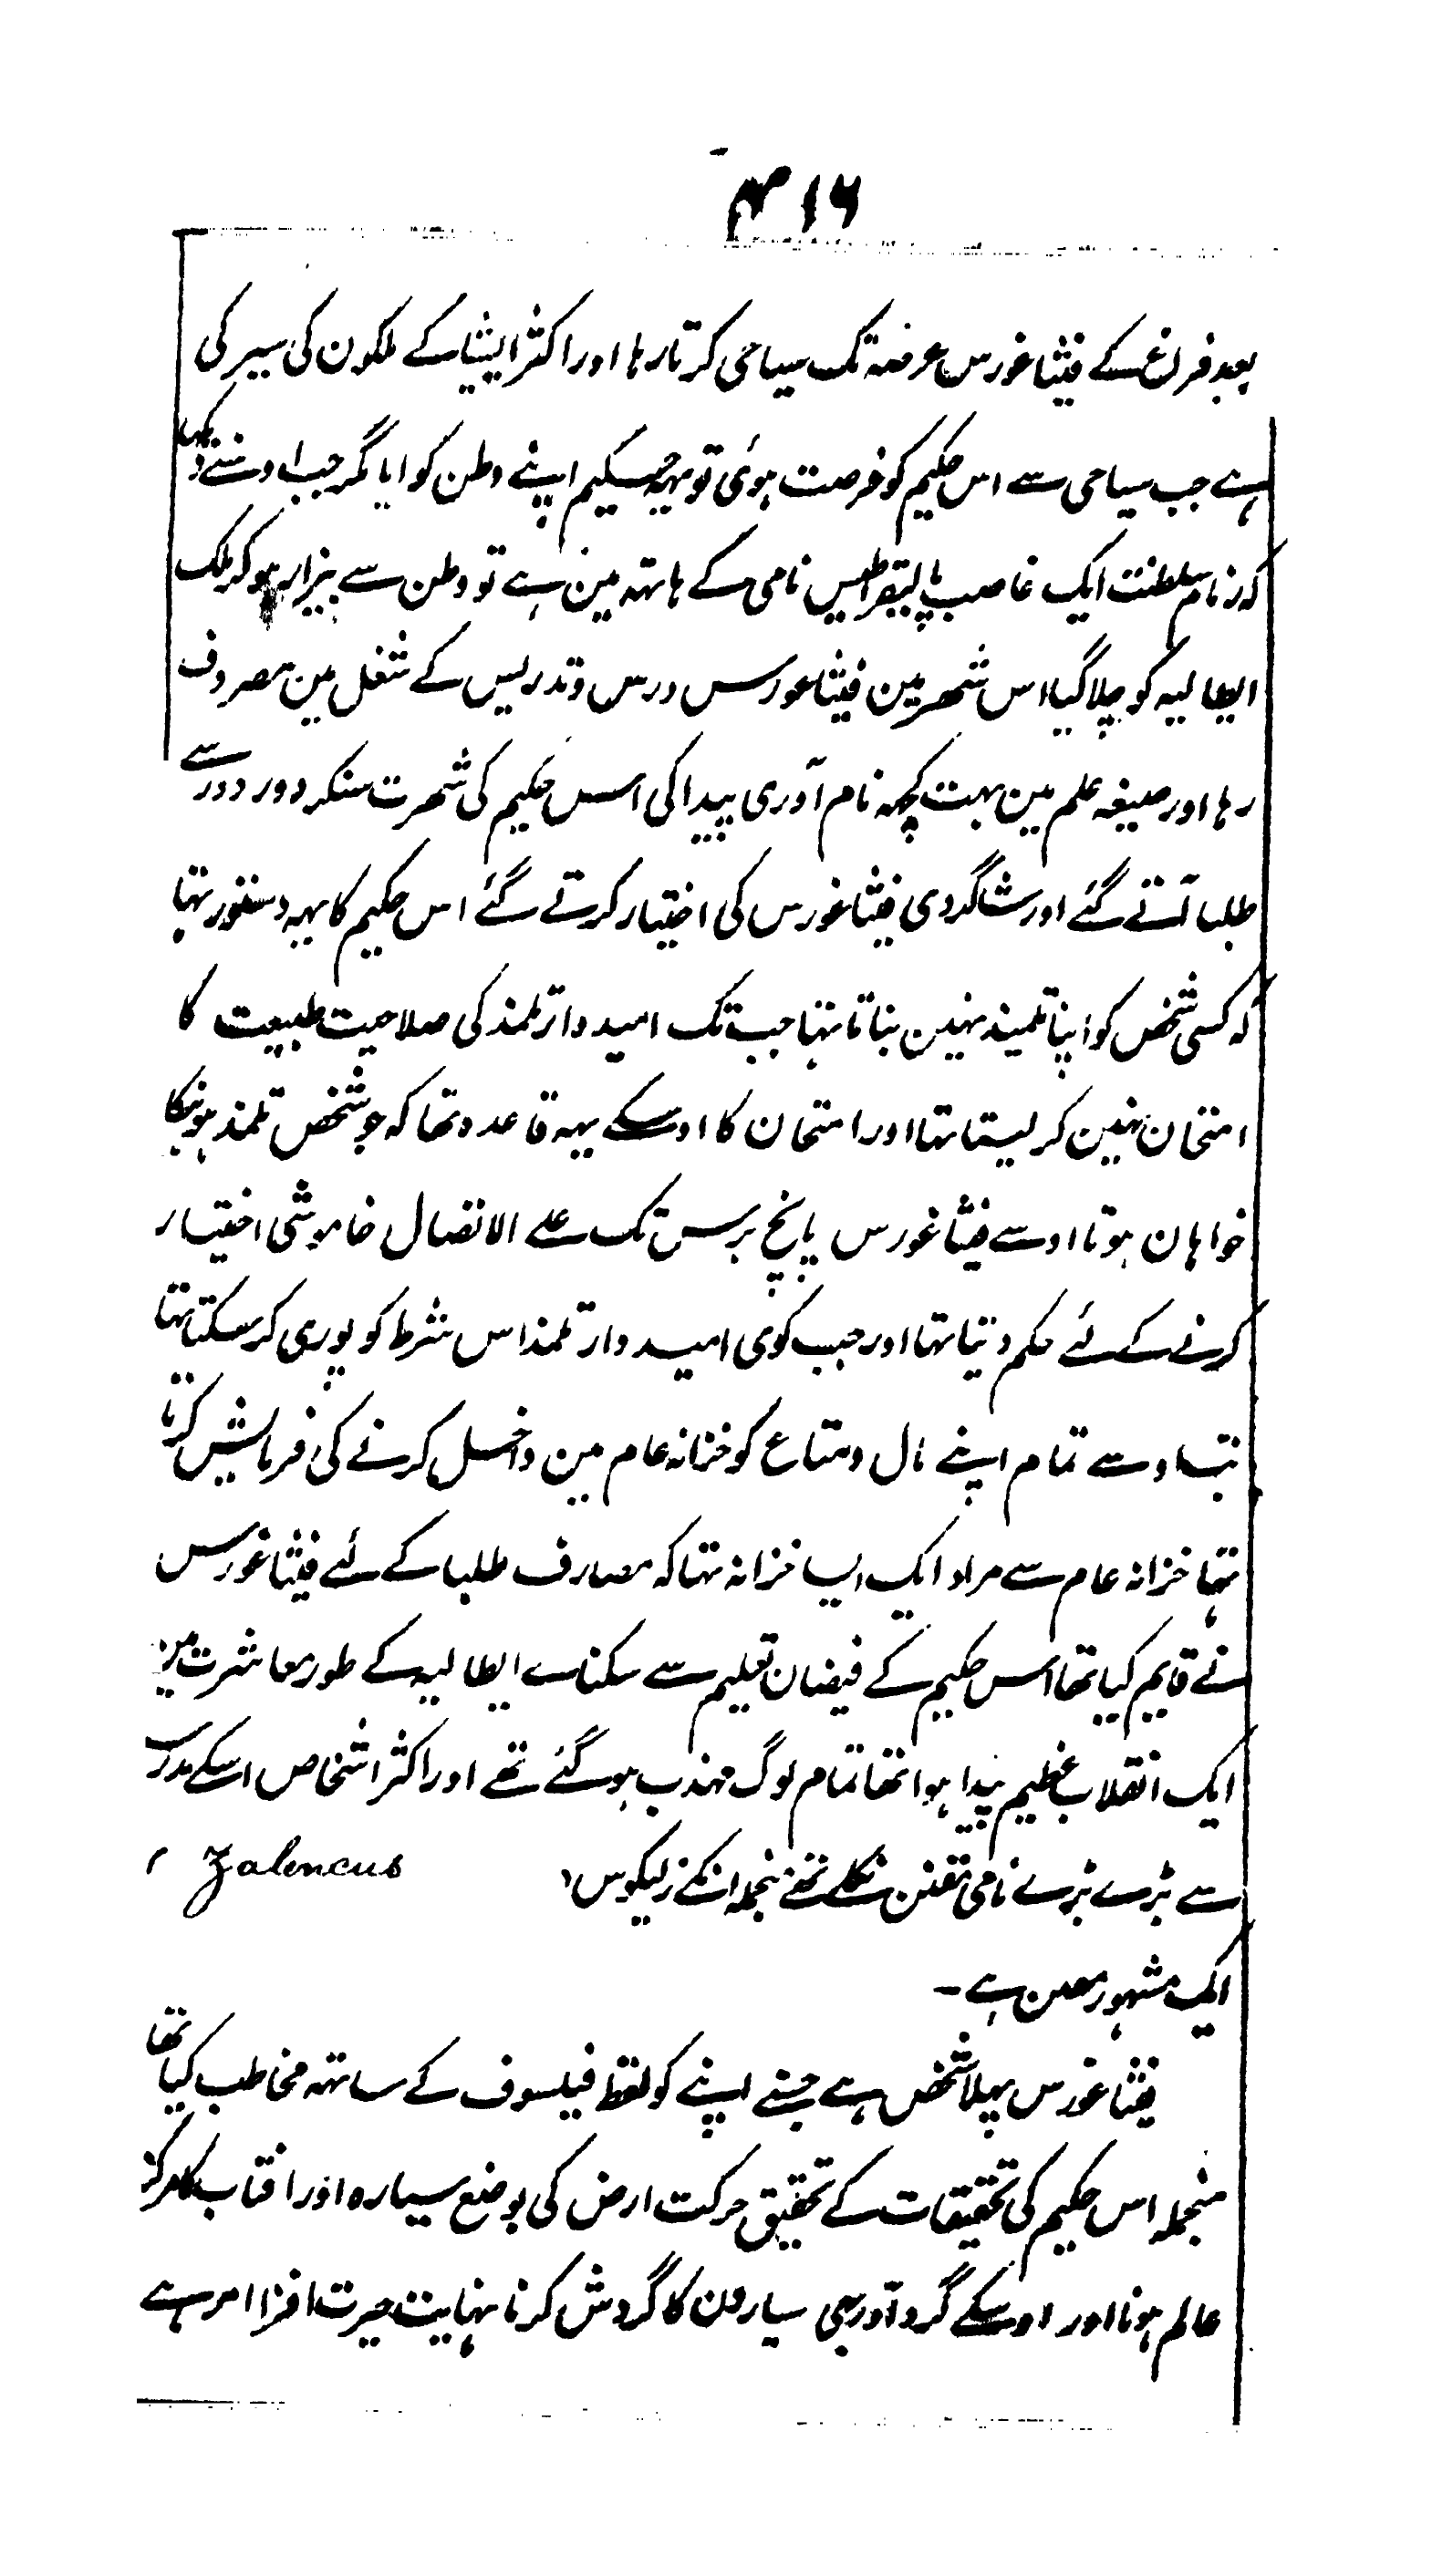 ۴۱۶
بعد فراغ کے فیثاغورس عرصہ تک سیاحی کرتا رہا اور اکثر ایشیا کے ملکون کی سیر کی
ہے جب سیاحی سے اس حکیم کو فرصت ہوئی تو یہہ حکیم اپنے وطن کو ایا مگر جب اوسنے دیکھا
کہ زمام سلطنت ایک غاصب پالیقراطیس نامی کے ہاتہہ مین ہے تو وطن سے بیزار ہو کر ملک
ایطالیہ کو چلا گیا اس شھر مین فیثاغورس درس و تدریس کے شغل مین مصروف
رہا اور صیغہ علم مین بہت کچہہ نام آوری پیدا کی اس حکیم کی شھرت سنکر دور دور سے
طلبا آتے گئے اور شاگردی فیثاغورس کی اختیار کرتے گئے اس حکیم کا یہہ دستور تہا
کہ کسی شخص کو اپنا تلمیذ نہین بناتا تہا جب تک امیدوار تلمذ کی صلاحیت طبیعت کا
امتحان نہین کر لیتا تہا اور امتحان کا اوسکے یہہ قاعدہ تھا کہ جو شخص تلمذ ہونیکا
خواہان ہوتا اوسے فیثاغورس پانچ برس تک علے الاتصال خاموشی اختیار
کرنے کے لئے حکم دیتا تہا اور جب کوی امیدوار تلمذ اس شرط کو پوری کر سکتا تہا
تب اوسے تمام اپنے مال و متاع کو خزانہ عام مین داخل کرنے کی فرمایش کرتا
تہا خزانہ عام سے مراد ایک ایسا خزانہ تہا کہ مصارف طلبا کے لئے فیثاغورس
نے قایم کیا تھا اس حکیم کے فیضان تعلیم سے سکناے ایطالیہ کے طور معاشرت مین
ایک انقلاب عظیم پیدا ہوا تھا تمام لوگ مہذب ہو گئے تھے اور اکثر اشخاص اسکے مدرسہ
سے بڑے بڑے نامی مقنن نکلے تھے منجملہ انکے زلیکوس ( Zalencus )
ایک مشہور مقنن ہے ۔
فیثاغورس پہلا شخص ہے جسنے اپنے کو لفظ فیلسوف کے ساتہہ مخاطب کیا تھا
منجملہ اس حکیم کی تحقیقات کے تحقیق حرکت ارض کی بوضع سیارہ اور افتاب کا مرکز
عالم ہونا اور اوسکے گرد اور سیارون کا گردش کرنا نہایت حیرت افزا امر ہے